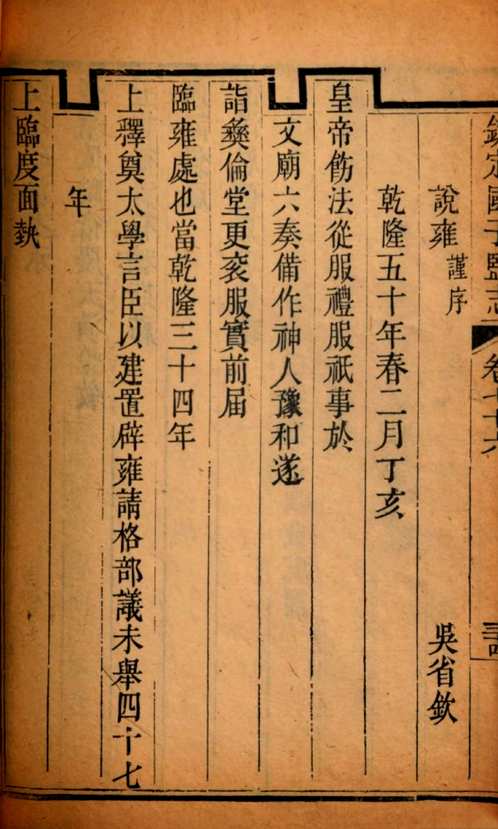 欽定國子監志 卷七十六
說雍謹序 吳省欽
乾隆五十年春二月丁亥
皇帝飭法從服禮服祇事於
文廟六奏備作神人豫和遂
詣彜倫堂更衮服實前届
臨雍處也當乾隆三十四年
上釋奠太學言臣以建置辟雍請格部議未舉四十七
年
上臨度面埶